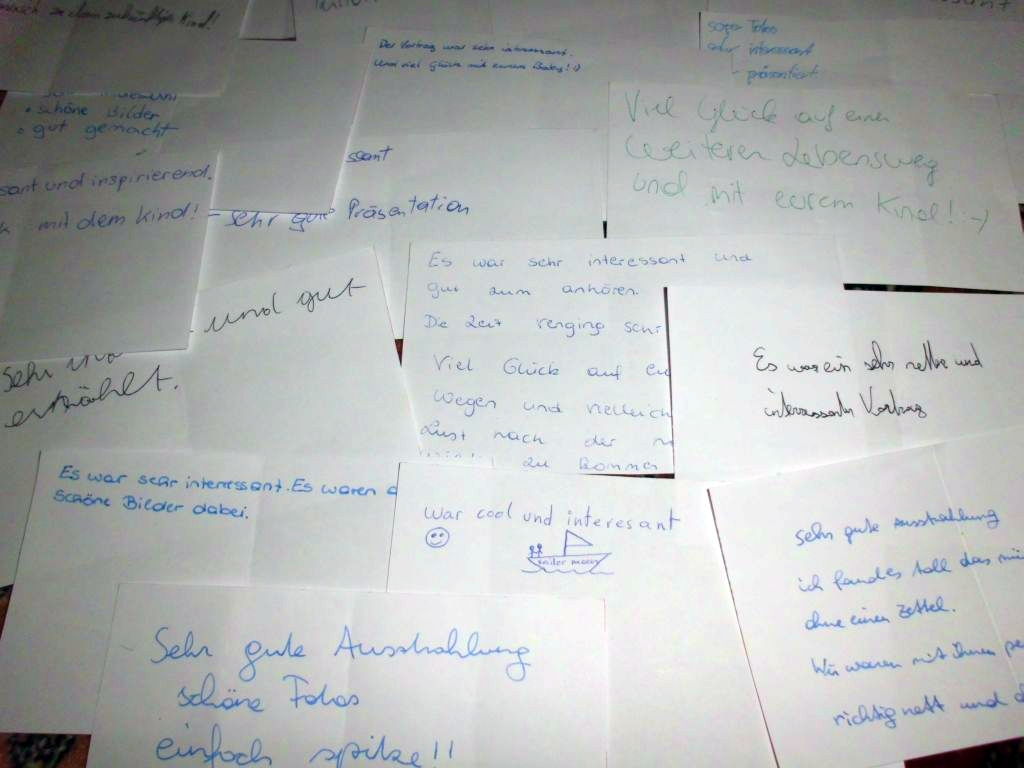 Kind!
Der Vortrag war sehr interessant.
Und viel Glück mit eurem Baby! :)
super Fotos
sehr interessant
- präsentiert
• schöne Bilder
• gut gemacht
Viel Glück auf euren
weiteren Lebensweg
und mit eurem Kind! :-)
ssant
- sehr gute Präsentation
sant und inspirierend.
mit dem Kind!
Es war sehr interessant und
gut zum anhören.
De Zeit verging
Viel Glück auf eu
wegen und vielleich
Lust nach der
zu kommen
und gut
Sehr
erzählt.
Es war ein sehr nette und
interessante Vortrag
Es war sehr interressant. Es waren
schöne Bilder dabei.
war cool und interesant
sailor moon
Sehr gute Ausstrahlung
ich fandes toll das
ohne einen Zettel.
Wir waren mit ihnen
richtig nett und
Sehr gute Ausstrahlung
schöne Fotos
einfach spitze!!